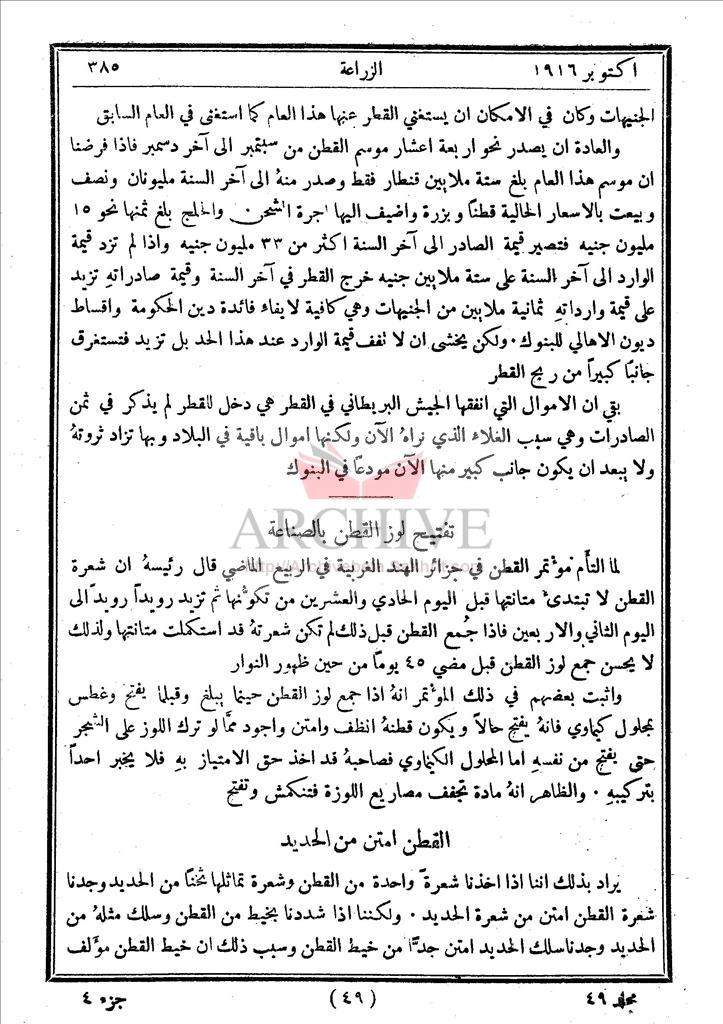 اكتوبر ١٩١٦ الزراعة ٣٨٥
الجنيهات وكان في الامكان ان يستغني القطر عنها هذا العام كما استغنى في العام السابق
والعادة ان يصدر نحو اربعة اعشار موسم القطن من سبتمبر الى آخر دسمبر فاذا فرضنا
ان موسم هذا العام بلغ ستة ملايين قنطار فقط وصدر منهُ الى آخر السنة مليونان ونصف
وبيعت بالاسعار الحالية قطناً وبزرة واضيف اليها اجرة الشحن والحلج بلغ ثمنها نحو ١٥
مليون جنيه فتصير قيمة الصادر الى آخر السنة اكثر من ٣٣ مليون جنيه واذا لم تزد قيمة
الوارد الى آخر السنة على ستة ملايين جنيه خرج القطر في آخر السنة وقيمة صادراتهِ تزيد
على قيمة وارداتهِ ثمانية ملايين من الجنيهات وهي كافية لايفاء فائدة دين الحكومة واقساط
ديون الاهالي للبنوك٠ ولكن يخشى ان لا تقف قيمة الوارد عند هذا الحد بل تزيد فتستغرق
جانباً كبيراً من ربح القطر
بقي ان الاموال التي انفقها الجيش البريطاني في القطر هي دخل للقطر لم يذكر في ثمن
الصادرات وهي سبب الغلاء الذي نراهُ الآن ولكنها اموال باقية في البلاد وبها تزاد ثروتهُ
ولا يبعد ان يكون جانب كبير منها الآن مودعاً في البنوك
ARCHIVE
تفتيح لوز القطن بالصناعة
لما التأم مؤتمر القطن في جزائر الهند الغربية في الربيع الماضي قال رئيسهُ ان شعرة
القطن لا تبتدئ متانتها قبل اليوم الحادي والعشرين من تكوُّنها ثم تزيد رويداً رويداً الى
اليوم الثاني والاربعين فاذا جُمع القطن قبل ذلك لم تكن شعرتهُ قد استكملت متانتها ولذلك
لا يحسن جمع لوز القطن قبل مضي ٤٥ يوماً من حين ظهور النوار
واثبت بعضهم في ذلك المؤتمر انهُ اذا جمع لوز القطن حينما يبلغ وقبلما يفتح وغطس
بمحلول كيماوي فانهُ يفتح حالاً ويكون قطنهُ انظف وامتن واجود ممَّا لو ترك اللوز على الشجر
حتى يفتح من نفسهِ اما المحلول الكيماوي فصاحبهُ قد اخذ حق الامتياز بهِ فلا يخبر احداً
بتركيبهِ ٠ والظاهر انهُ مادة تجفف مصاريع اللوزة فتنكمش وتفتح
القطن امتن من الحديد
يراد بذلك اننا اذا اخذنا شعرة واحدة من القطن وشعرة تماثلها ثخناً من الحديد وجدنا
شعرة القطن امتن من شعرة الحديد ٠ ولكننا اذا شددنا بخيط من القطن وسلك مثلهُ من
الحديد وجدنا سلك الحديد امتن جدًّا من خيط القطن وسبب ذلك ان خيط القطن مؤلف
مجلد ٤٩ (٤٩) جزء ٤